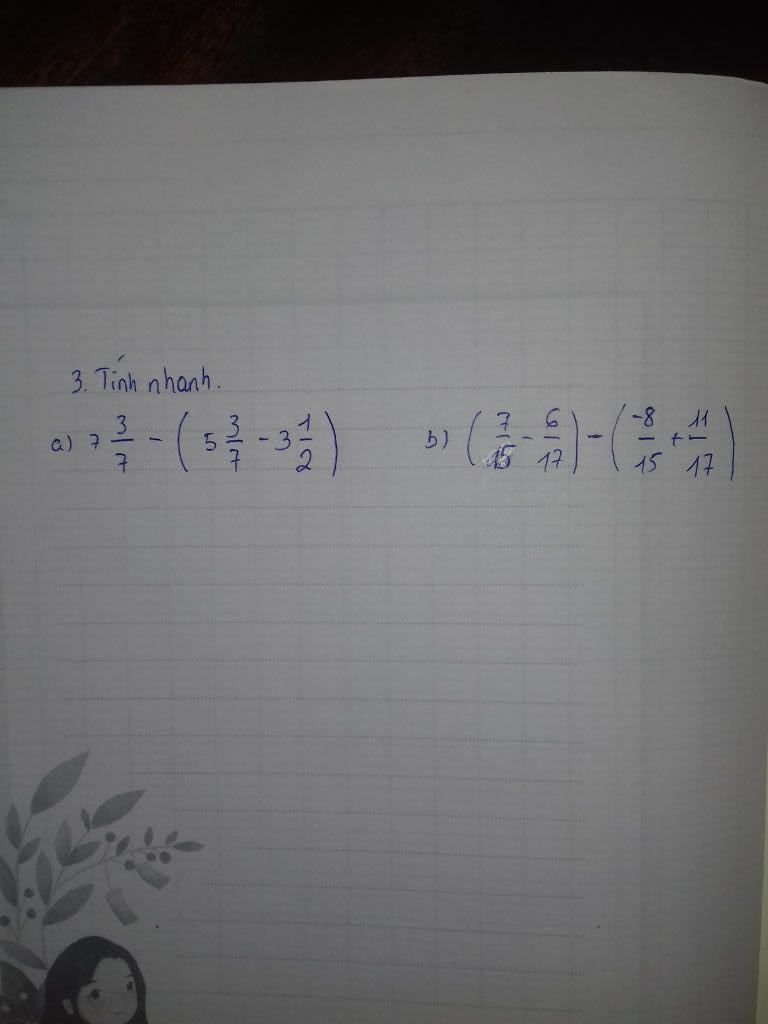 3. Tính nhanh.
a) 7 3/7 - ( 5 3/7 - 3 1/2 ) b) ( 7/15 - 6/17 ) - ( -8/15 + 11/17 )